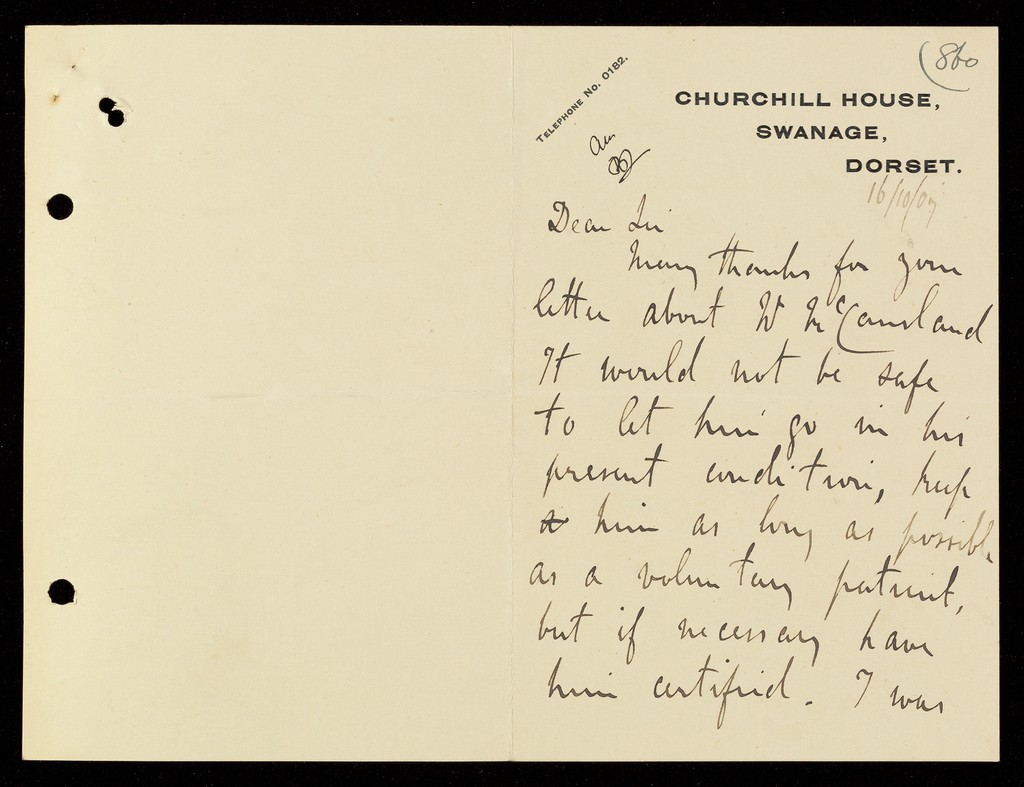 (860
TELEPHONE No. 0182.
CHURCHILL HOUSE,
SWANAGE,
DORSET.
16/10/07
Dear Sir
Many thanks for your
letter about W McCausland
It would not be safe
to let him go in his
present condition, keep
him as long as possible
as a voluntary patient,
but if necessary have
him certified. I was